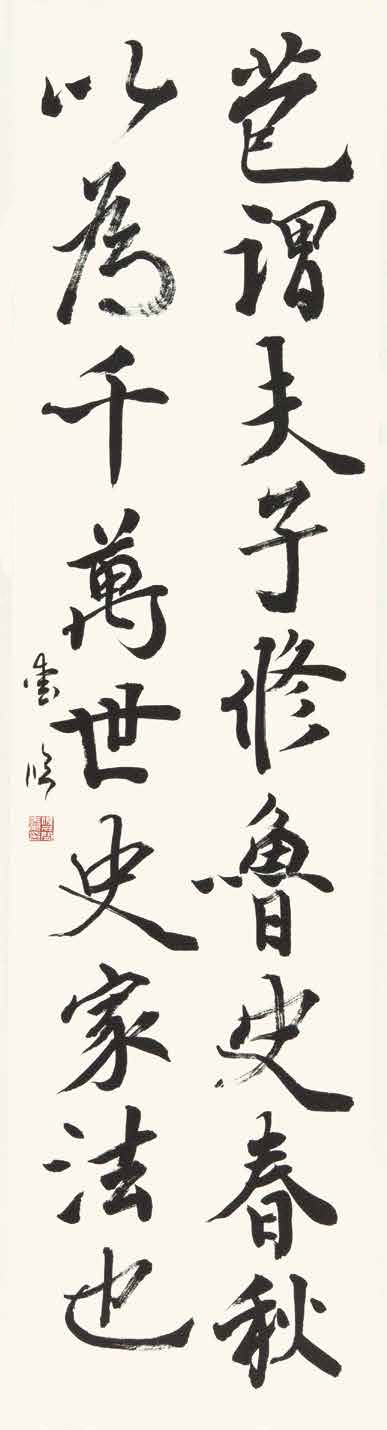 苞謂夫子修魯史春秋
以為千萬世史家法也